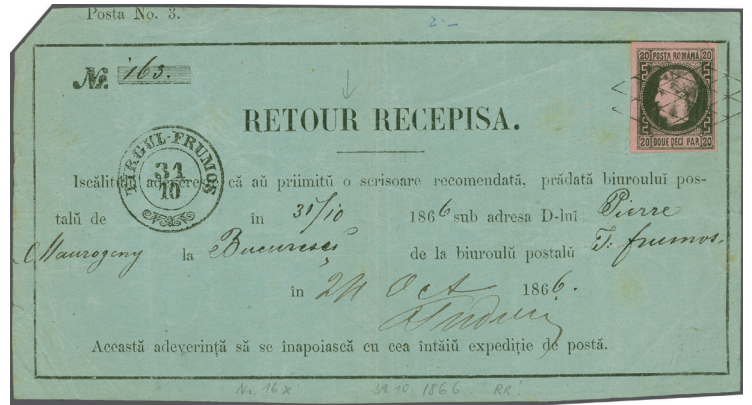 Posta No. 3.
2.–
No. 163.
20 POSTA ROMANA 20
20 DOUE DECI PAR 20
RETOUR RECEPISA.
TIRGUL-FRUMOS
31
10
Iscălitul adeveresc că aŭ priimitŭ o scrisoare recomendată, prădată biurouluĭ pos-
talŭ de în 31/10 1866 sub adresa D-luĭ Pierre
Maurogeny la Bucuresci de la biuroulŭ postalŭ T: frumos.
în 24 Oct 1866.
Această adeverinţă să se înapoiască cu cea întăiŭ expediţie de poştă.
Nr. 16x 31 10. 1866 RR!